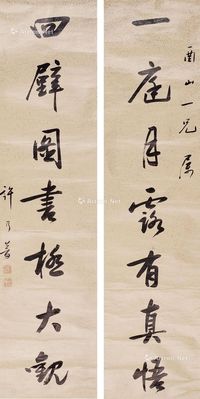 酉山一兄属
一庭月露有真悟
四壁图书极大观
许乃普